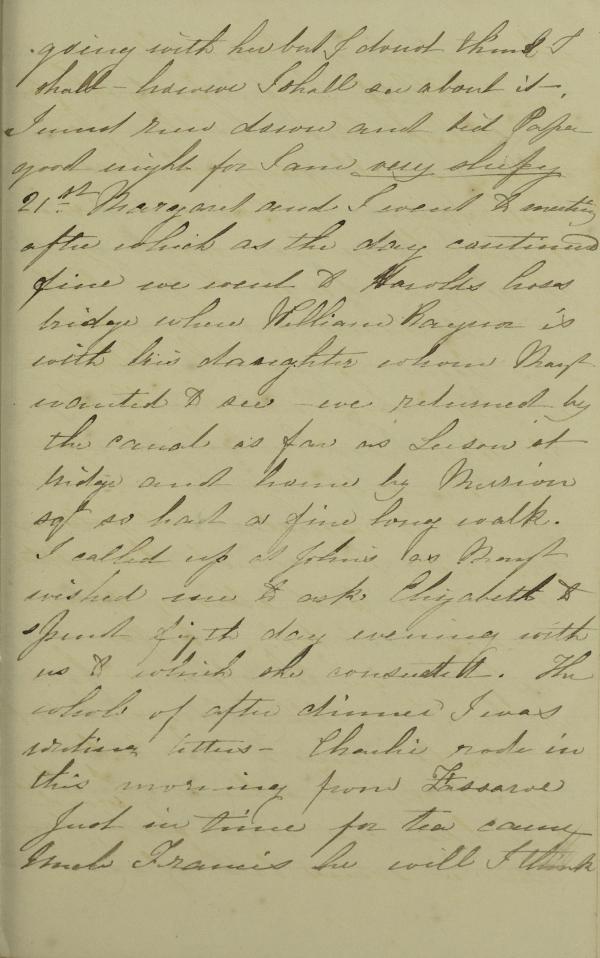 going with her but I do not think I
shall - however I shall see about it -.
I must run down and bid Papa
good night for I am very sleepy
21st. Margaret and I went to meeting
after which as the day continued
fine we went to Harolds cross
bridge where William Raynor is
with his daughter whom Margt
wanted to see - we returned by
the canal as far as Leeson st
bridge and home by Merrion
sqr so had a fine long walk.
I called up at John's as Margt
wished me to ask Elizabeth to
spend fifth day evening with
us to which she consented. The
whole of after dinner I was
writing letters - Charlie rode in
this morning from Fassaroe
Just in time for tea came
Uncle Francis he will I think